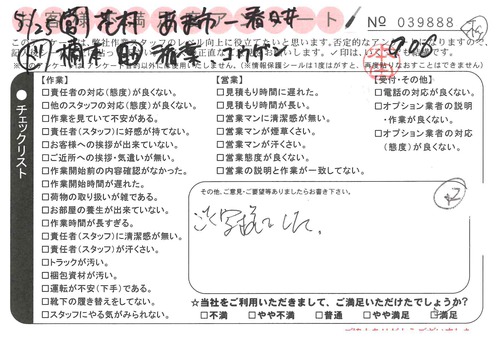 5/25
No 039888
【作業】
□責任者の対応(態度)が良くない。
□他のスタッフの対応(態度)が良くない。
□作業を見ていて不安がある。
□責任者(スタッフ)に好感が持てない。
□お客様への挨拶が出来ていない。
□ご近所への挨拶・気遣いが無い。
□作業開始前の内容確認がなかった。
□作業開始時間が遅れた。
□荷物の取り扱いが雑である。
□お部屋の養生が出来ていない。
□作業時間が長すぎる。
□責任者(スタッフ)に清潔感が無い。
□責任者(スタッフ)が汗くさい。
□トラックが汚い。
□梱包資材が汚い。
□運転が不安(下手)である。
□靴下の履き替えをしてない。
□スタッフにやる気がみられない。
【営業】
□見積もり時間に遅れた。
□見積もり時間が長い。
□営業マンに清潔感が無い。
□営業マンが煙草くさい。
□営業マンが汗くさい。
□営業態度が良くない。
□営業の説明と作業が一致してない。
【受付・その他】
□電話の対応が良くない。
□オプション業者の説明
・作業が良くない。
□オプション業者の対応
(態度)が良くない。
チェックリスト
その他、ご意見・ご要望等ありましたらお書き下さい。
ご苦労様でした。
☆当社をご利用いただきまして、ご満足いただけたでしょうか?
□不満 □やや不満 □普通 □やや満足 □満足